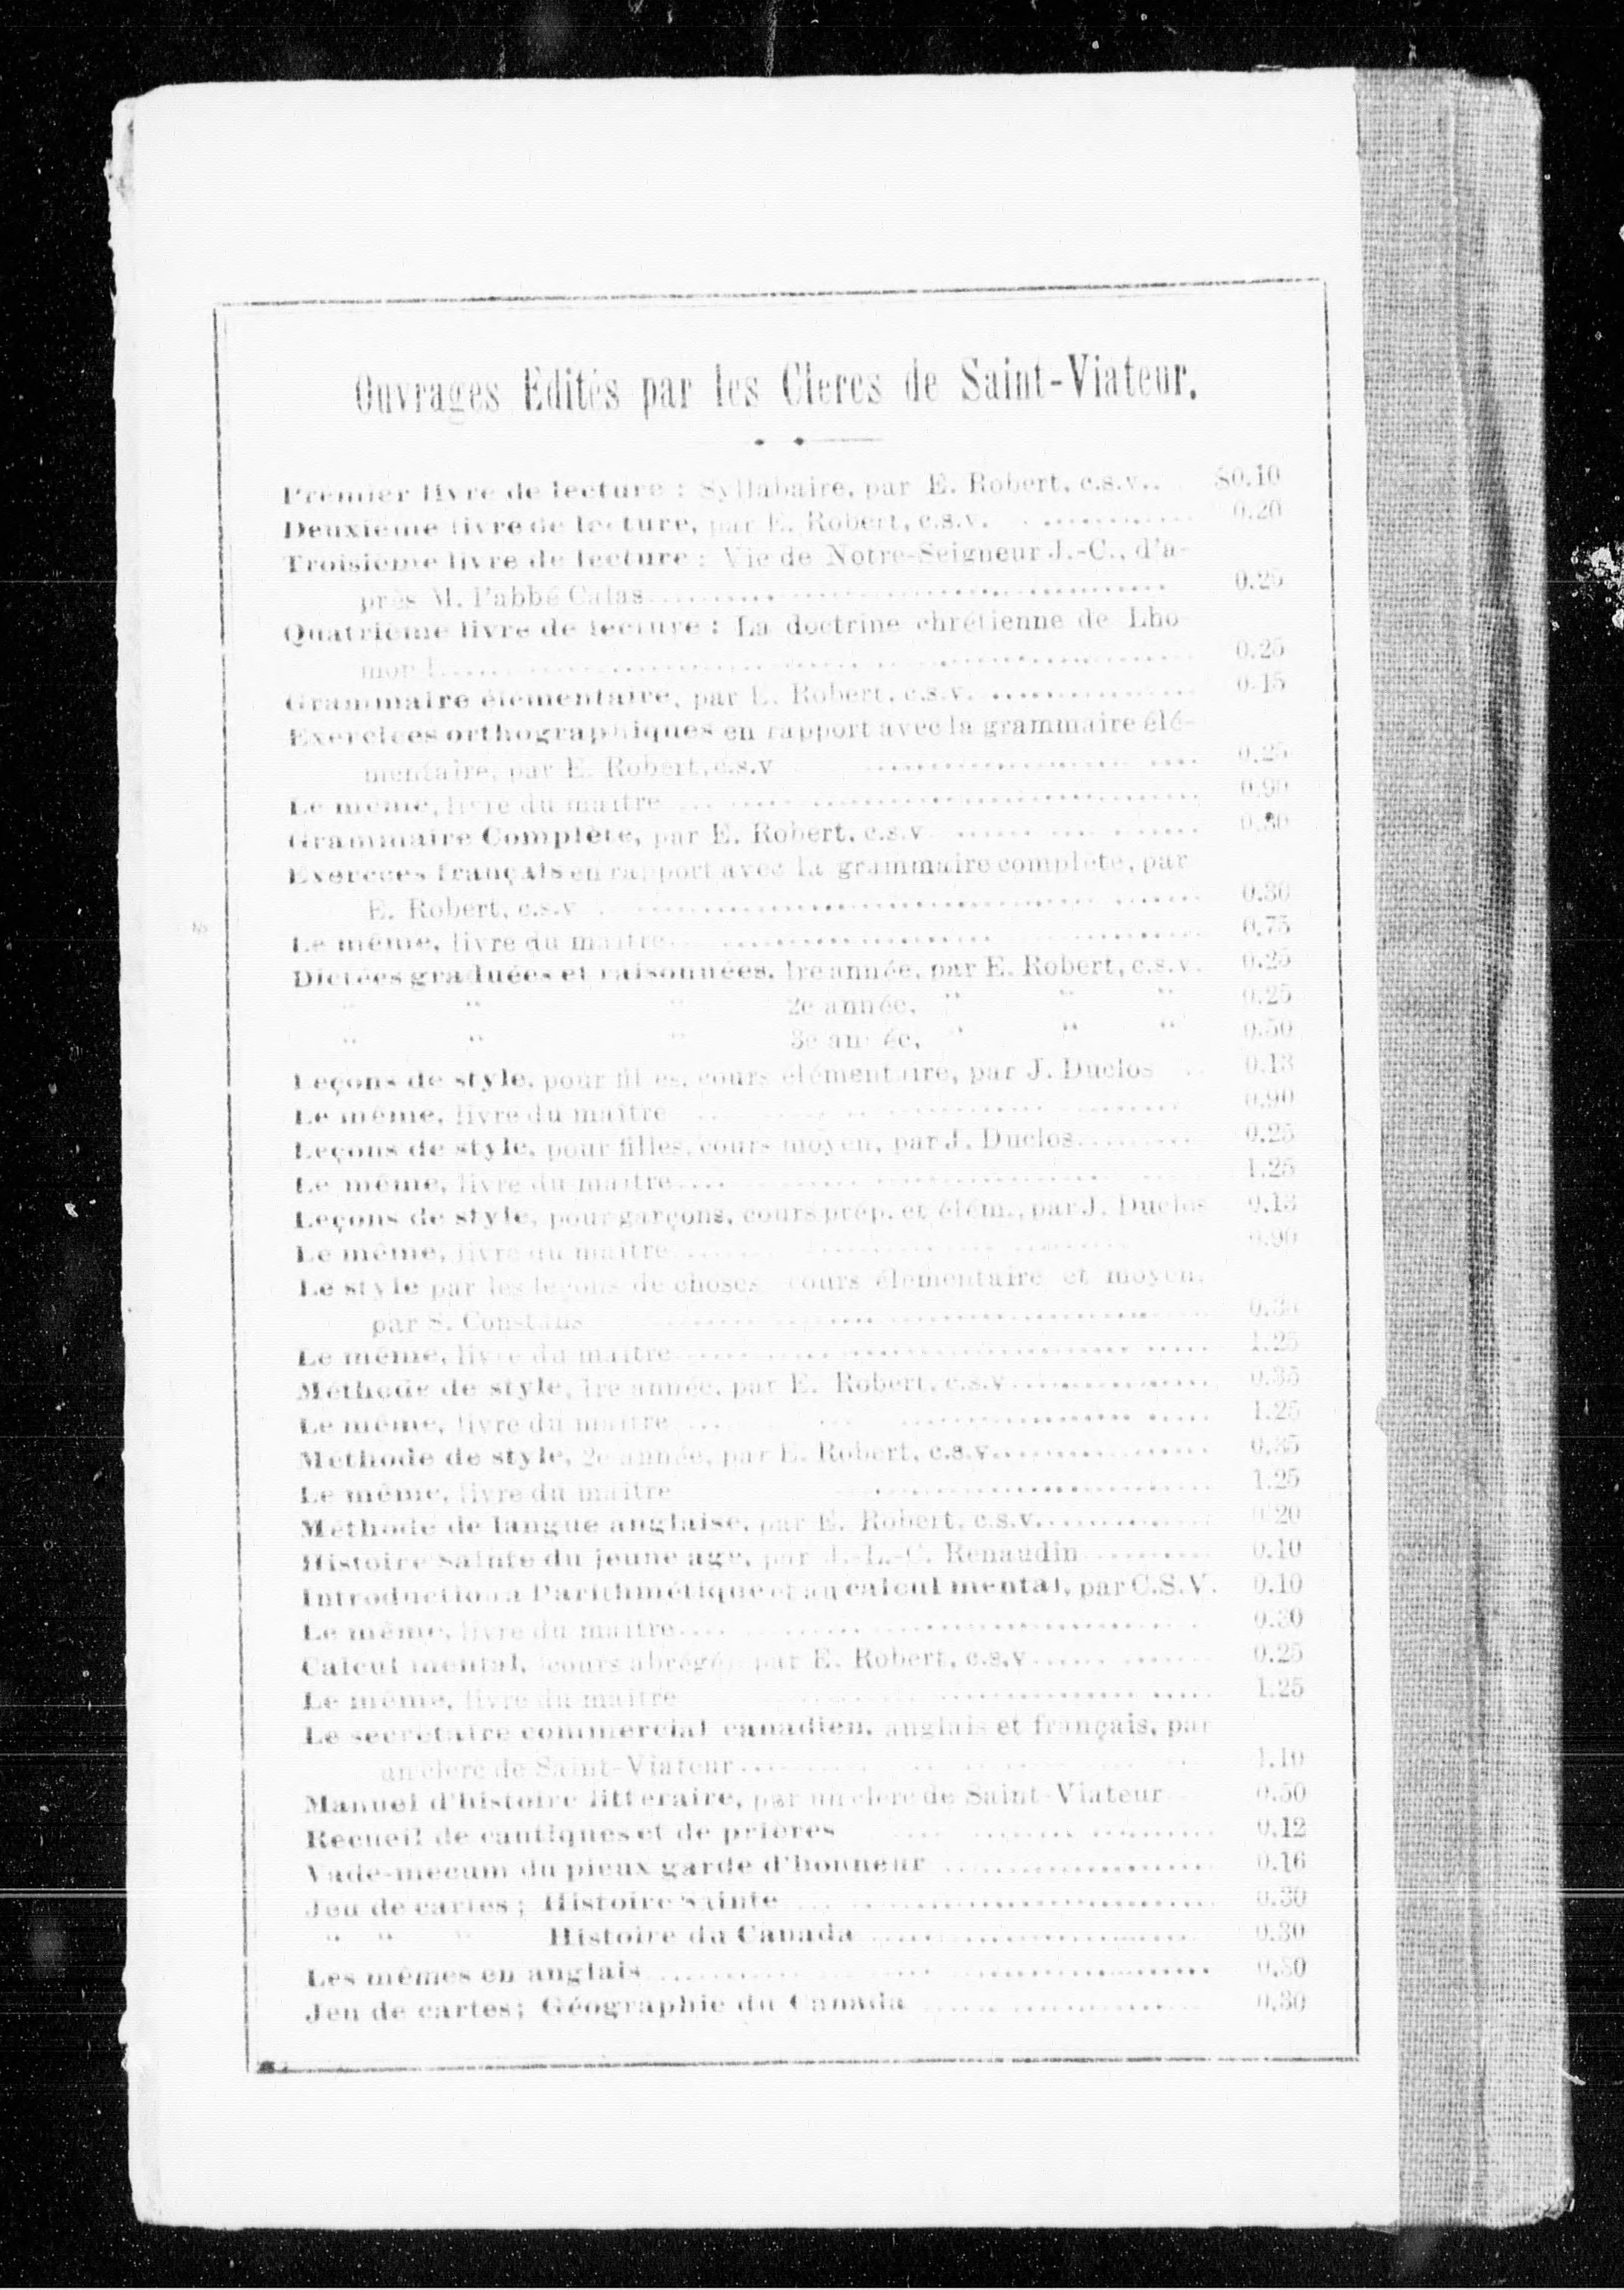 Ouvrages Edités par les Clercs de Saint-Viateur.
Premier livre de lecture : Syllabaire, par E. Robert, c.s.v.. $0.10
Deuxième livre de lecture, par E. Robert, c.s.v. ............ 0.20
Troisième livre de lecture : Vie de Notre-Seigneur J.-C., d'a-
près M. l'abbé Calas............ 0.25
Quatrième livre de lecture : La doctrine chrétienne de Lho
mond............ 0.25
Grammaire élémentaire, par E. Robert, c.s.v. ............ 0.15
Exercices orthographiques en rapport avec la grammaire élé-
mentaire, par E. Robert, c.s.v ............ 0.25
Le même, livre du maître ............ 0.90
Grammaire Complète, par E. Robert, c.s.v ............
Exercces français en rapport avec la grammaire complète, par
E. Robert, c.s.v ............ 0.30
Le même, livre du maître............ 0.75
Dictées graduées et raisonnées, 1re année, par E. Robert, c.s.v. 0.25
" " " 2e année, " " " 0.25
" " " 3e année, " " " 0.50
Leçons de style, pour filles, cours élémentaire, par J. Duclos ... 0.13
Le même, livre du maître ............ 0.90
Leçons de style, pour filles, cours moyen, par J. Duclos............ 0.25
Le même, livre du maître............ 1.25
Leçons de style, pour garçons, cours prép. et élém., par J. Duclos 0.13
Le même, livre du maître............ 0.90
Le style par les leçons de choses cours élémentaire et moyen,
par S. Constans ............
Le même, livre du maître............ 1.25
Méthode de style, 1re année, par E. Robert, c.s.v............ 0.35
Le même, livre du maître ............ 1.25
Méthode de style, 2e année, par E. Robert, c.s.v............ 0.35
Le même, livre du maître ............ 1.25
Méthode de langue anglaise, par E. Robert, c.s.v............ 0.20
Histoire Sainte du jeune age, par J.-L.-C. Renaudin............ 0.10
Introduction à l'arithmétique et au calcul mental, par C.S.V. 0.10
Le même, livre du maître............ 0.30
Calcul mental, (cours abrégé) par E. Robert, c.s.v............ 0.25
Le même, livre du maître ............ 1.25
Le secrétaire commercial canadien, anglais et français, par
un clerc de Saint-Viateur............ 1.10
Manuel d'histoire littéraire, par un clerc de Saint-Viateur 0.50
Recueil de cantiques et de prières ............ 0.12
Vade-mecum du pieux garde d'honneur ............ 0.16
Jeu de cartes ; Histoire Sainte ............ 0.30
" " " Histoire du Canada ............ 0.30
Les mêmes en anglais............ 0.30
Jeu de cartes; Géographie du Canada ............ 0.30